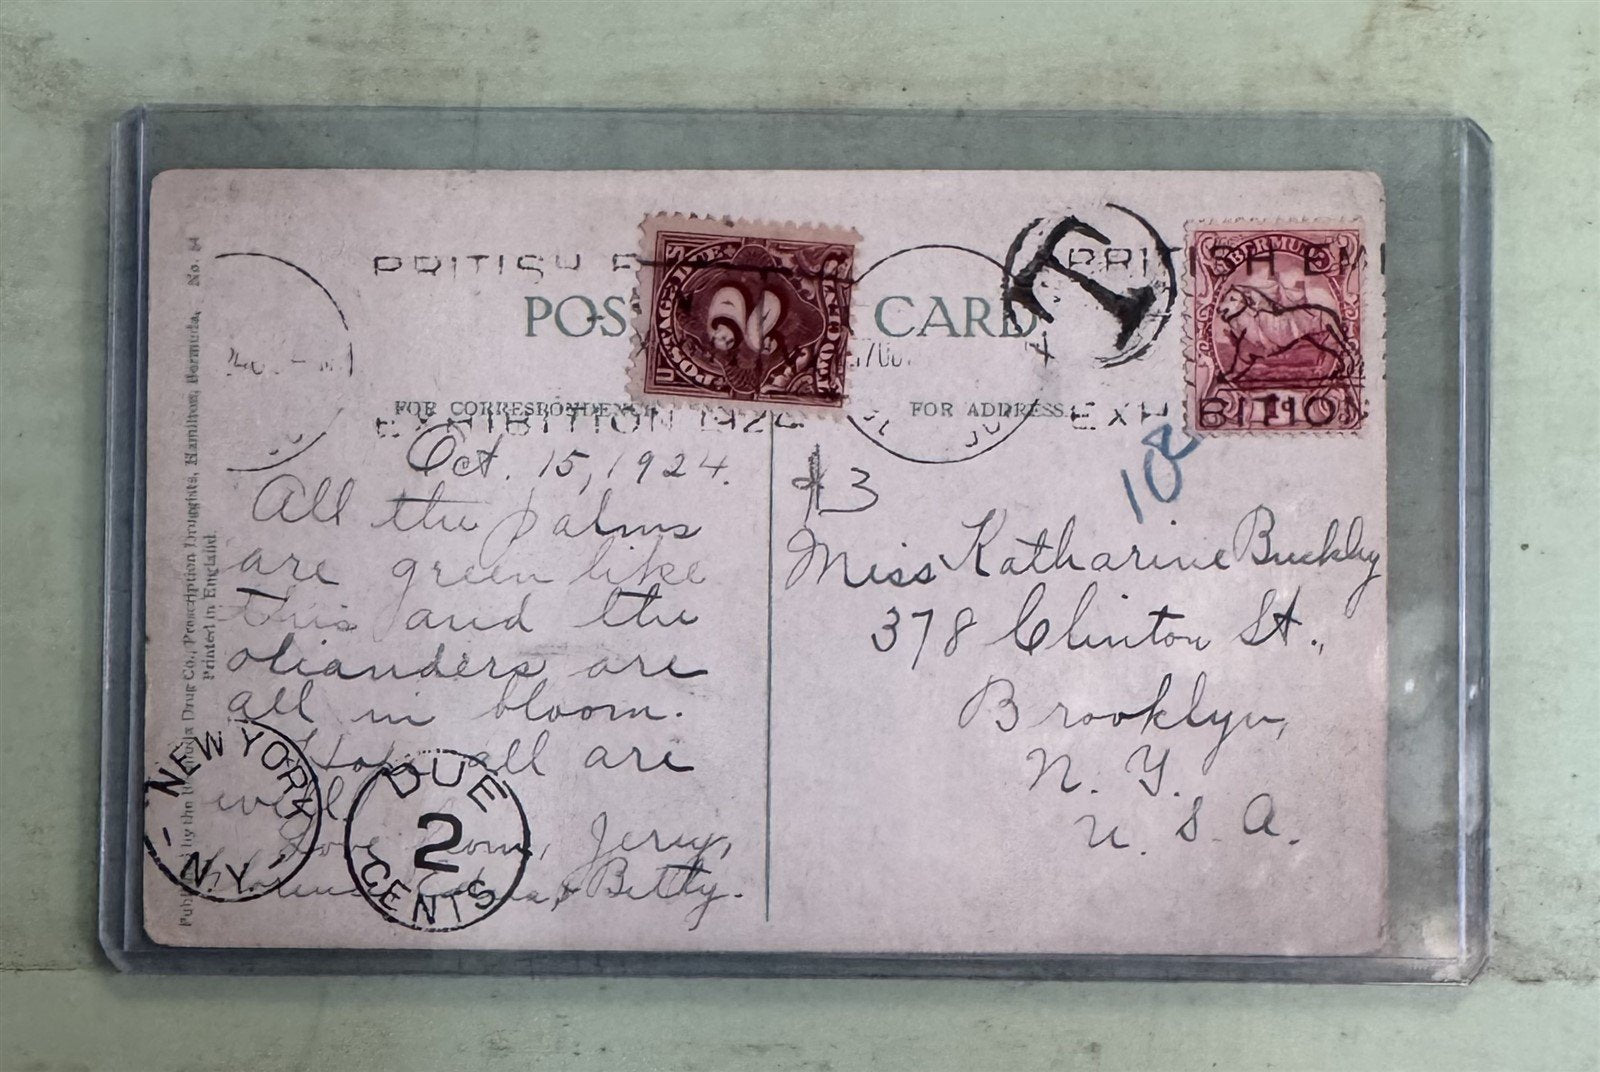 BRITISH
POST CARD
FOR CORRESPONDENCE
FOR ADDRESS
EXHIBITION 1924
U.S. POSTAGE DUE
2
TWO CENTS
T
BRITISH EM
BERMUDA
EXHIBITION
108
Oct. 15, 1924.
All the palms
are green like
this and the
olianders are
all in bloom.
Hope all are
well
Love from, Jerry,
& Betty.
#3
Miss Katharine Buckley
378 Clinton St.,
Brooklyn,
N. Y.
U. S. A.
NEW YORK
- N.Y. -
DUE
2
CENTS
Published by the Bermuda Drug Co., Prescription Druggists, Hamilton, Bermuda. No. 54
Printed in England.